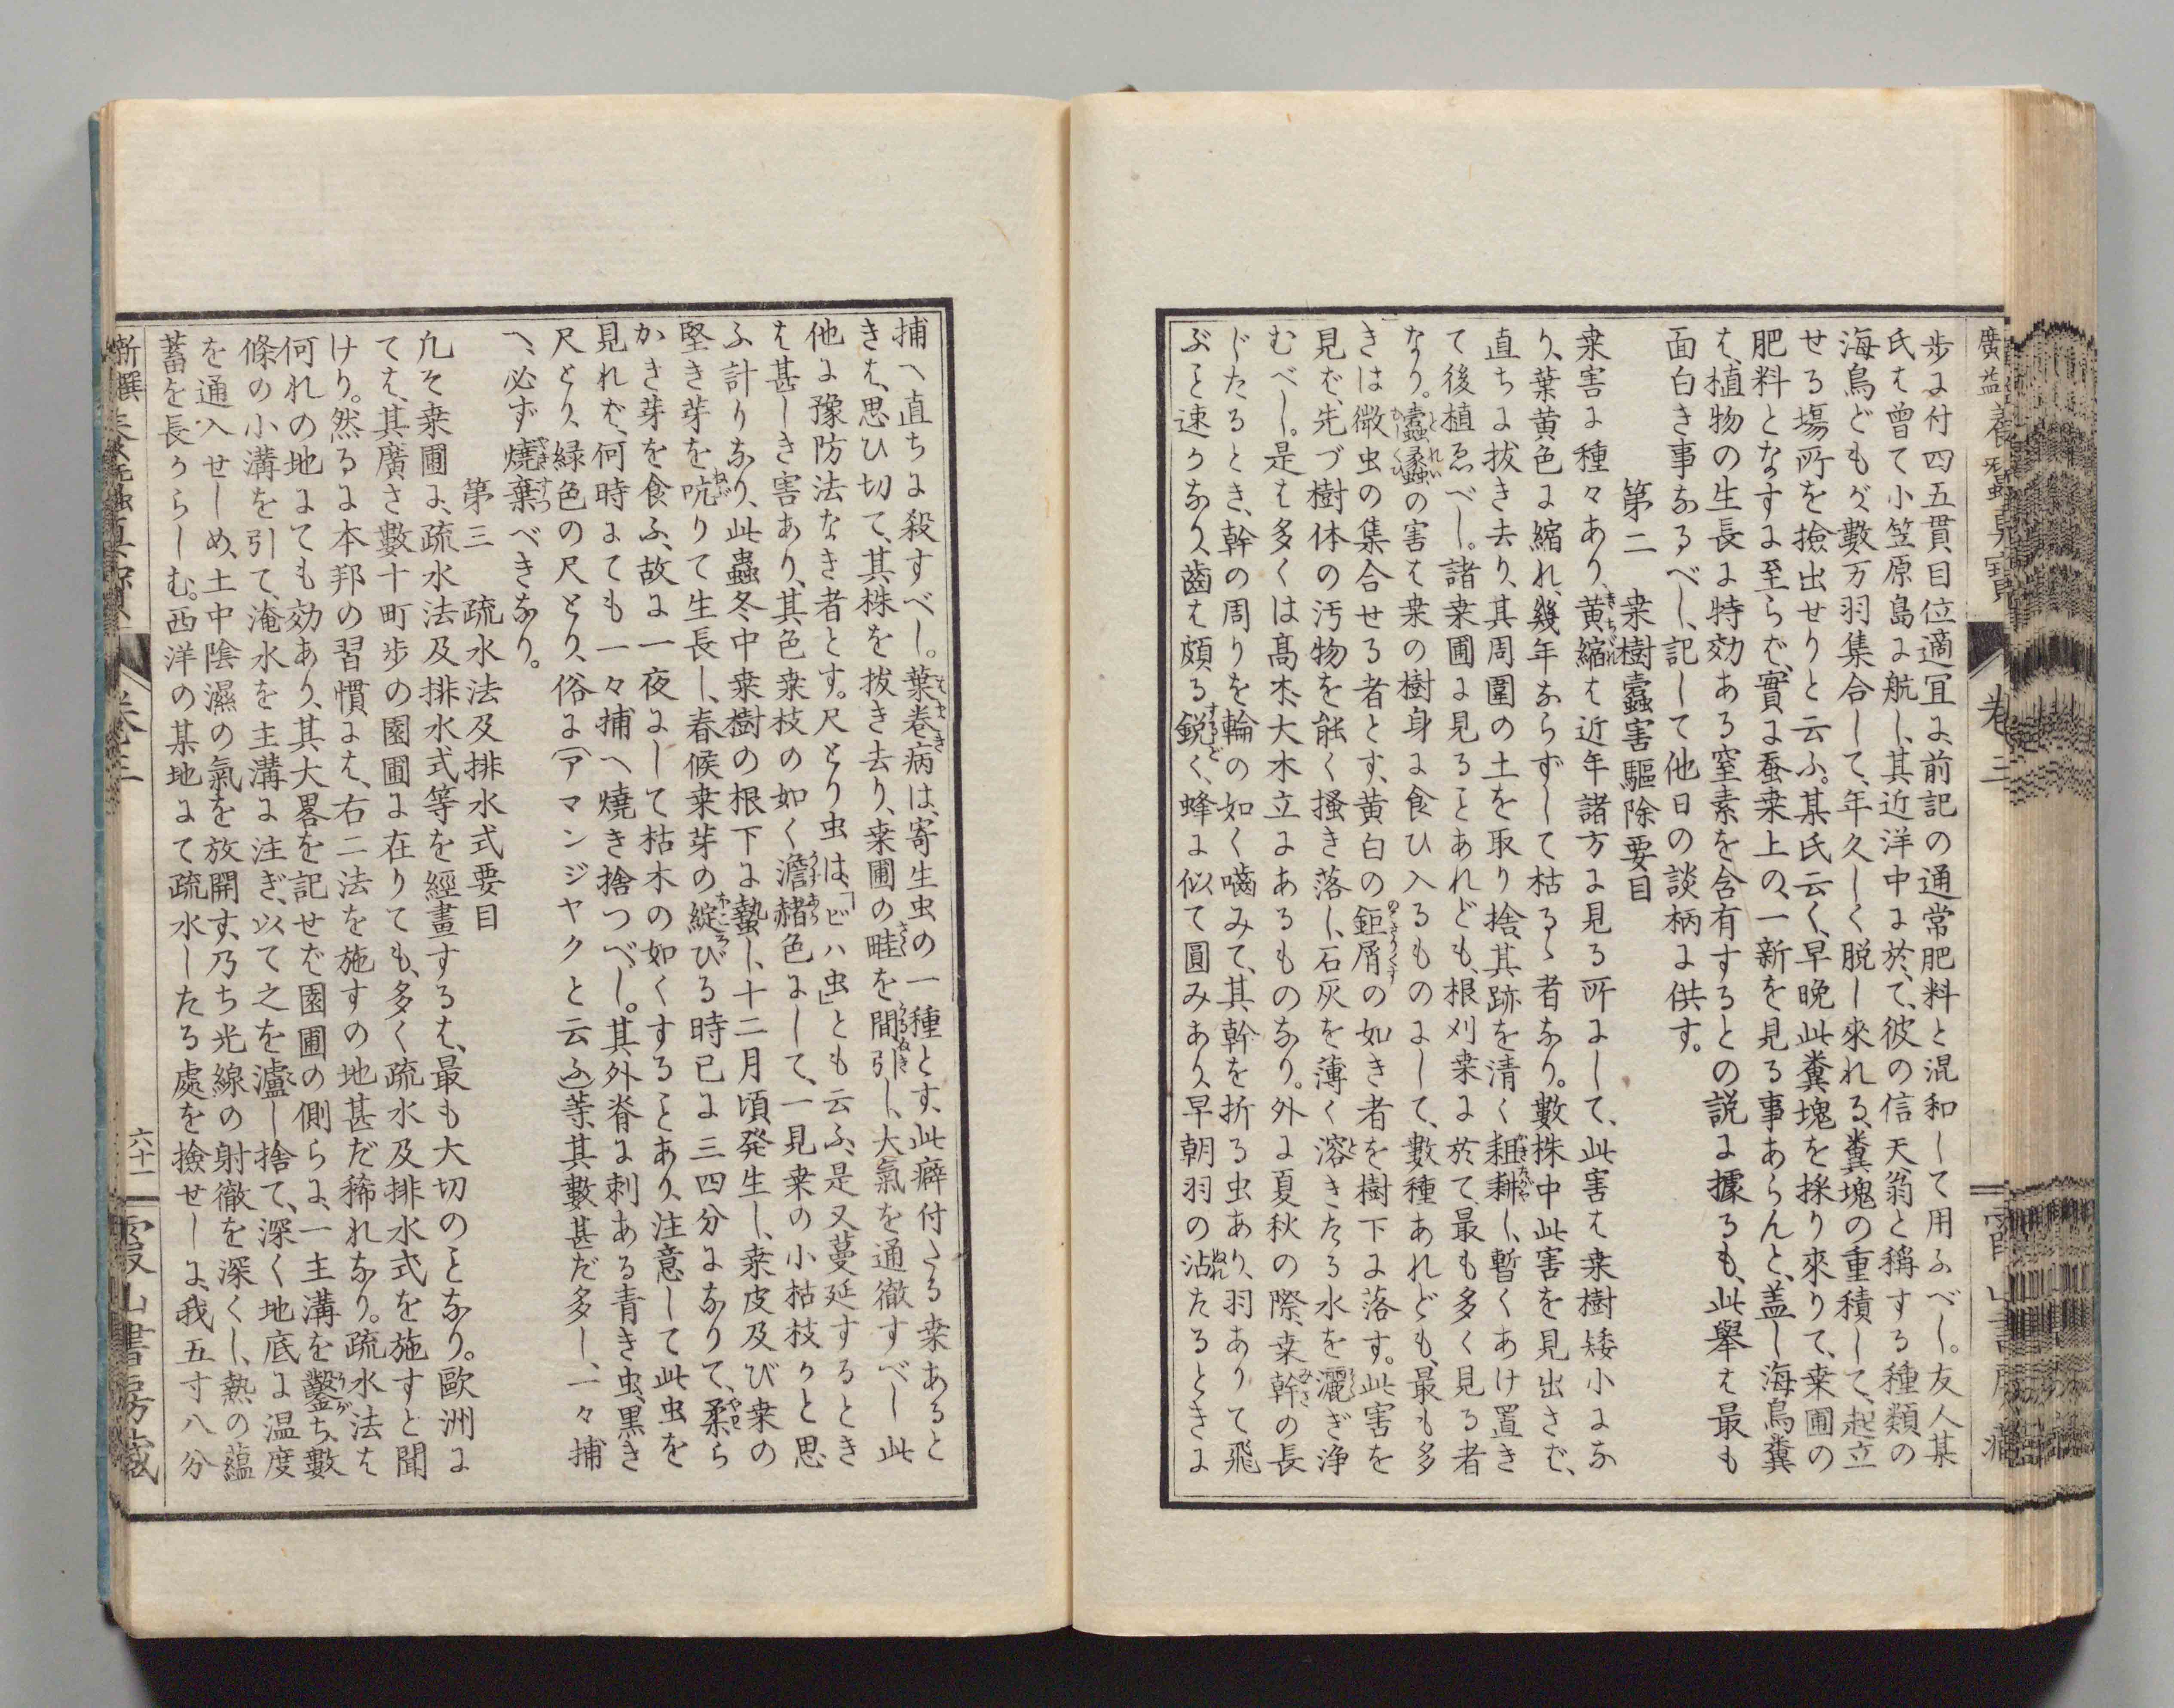 廣益養蠶
卷三
歩に付四五貫目位適冝に、前記の通常肥料と混和して用ふべし。友人某
氏は曽て小笠原島に航し、其近洋中に於て、彼の信天翁と稱する種類の
海鳥どもが、數万羽集合して、年久しく脱し來れる、糞塊の重積して、起立
せる塲所を撿出せりと云ふ。其氏云く、早晩此糞塊を採り來りて、桒圃の
肥料となすに至らば、實に蚕桒上の、一新を見る事あらんと、盖し海鳥糞
は、植物の生長に特効ある窒素を含有するとの説に據るも、此擧は最も
面白き事なるべし、記して他日の談柄に供す。
第二　桒樹蠧害驅除要目
桒害に種々あり、黄縮は近年諸方に見る所にして、此害は桒樹矮小にな
り、葉黄色に縮れ、幾年ならずして枯るゝ者なり。數株中此害を見出さば、
直ちに拔き去り、其周圍の土を取り捨其跡を清く耕し、暫くあけ置き
て後植ゑべし。諸桒圃に見ることあれども、根刈桒に於て、最も多く見る者
なり。蠧蟸の害は桒の樹身に食ひ入るものにして、數種あれども、最も多
きは微虫の集合せる者とす、黄白の鉅屑の如き者を樹下に落す。此害を
見ば、先づ樹体の汚物を能く搔き落し、石灰を薄く溶きたる水を灑ぎ浄
むべし。是は多くは髙木、大木立にあるものなり。外に夏秋の際、桒幹の長
じたるとき、幹の周りを輪の如く嚙みて、其幹を折る虫あり、羽ありて飛
ぶこと速かなり、齒は頗る鋭く、蜂に似て圓みあり、早朝羽の沾たるときに
捕へ直ちに殺すべし。葉卷病は、寄生虫の一種とす、此癖付たる桒あると
きは、思ひ切て、其株を拔き去り、桒圃の畦を間引し、大氣を通徹すべし此
他に豫防法なき者とす。尺とり虫は、「ビハ虫」とも云ふ、是又蔓延するとき
は甚しき害あり、其色桒枝の如く澹赭色にして、一見桒の小枯枝かと思
ふ計りなり、此蟲冬中桒樹の根下に蟄し、十二月頃発生し、桒皮及び桒の
堅き芽を吭りて生長し、春候桒芽の綻びる時已に三四分になりて、柔ら
かき芽を食ふ、故に一夜にして枯木の如くすることあり、注意して此虫を
見れば、何時にても一々捕へ燒き捨つべし。其外脊に刺ある青き虫、黒き
尺とり、緑色の尺とり、俗に(アマンジヤクと云ふ)等、其數甚だ多し、一々捕
へ、必ず燒棄べきなり。
第三　疏水法及排水式要目
凢そ桒圃に、疏水法及排水式等を經畫するは、最も大切のことなり。歐洲に
ては、其廣さ數十町歩の園圃に在りても、多く疏水及排水式を施すと聞
けり。然るに本邦の習慣には、右二法を施すの地甚だ稀れなり。疏水法は
何れの地にても効あり、其大畧を記せば園圃の側らに、一主溝を鑿ち、數
條の小溝を引て、淹水を主溝に注ぎ、以て之を瀘し捨て、深く地底に温度
を通入せしめ、土中陰濕の氣を放開す、乃ち光線の射徹を深くし、熱の蘊
蓄を長からしむ。西洋の某地にて疏水したる處を撿せしに、我五寸八分
新撰
卷三
六十一
山書房藏